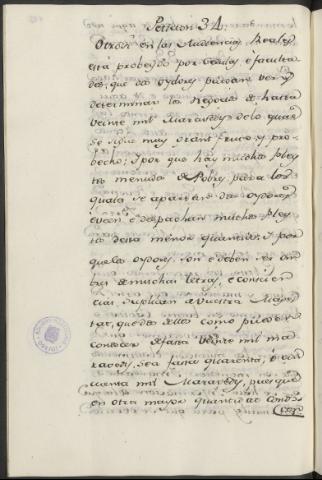 Peticion 34.
Otrosi en las Audiencias Reales
está probeydo por Cedulas, é faculta-
des, que dos oydores puedan ver, y
determinar los Negocios de hasta
veinte mil Maravedys de lo qual
se sigue muy grant fruto, y pro-
becho; I por que hay muchos Pley-
tos menudos de Pobres, para los
quales se apartan dos oydores
é veen, é despachan muchos Pley-
tos desta menor quantia: I por
que los oydores, son é deben ser om-
bres de muchas letras, é concien-
cias, suplican a vuestra Mages-
tat, que dos dellos como pueden
conoscer de fasta veinte mil ma-
ravedys, sea fasta quarenta, ó cin-
cuenta mil Maravedys, pues que
en otra mayor quantia de